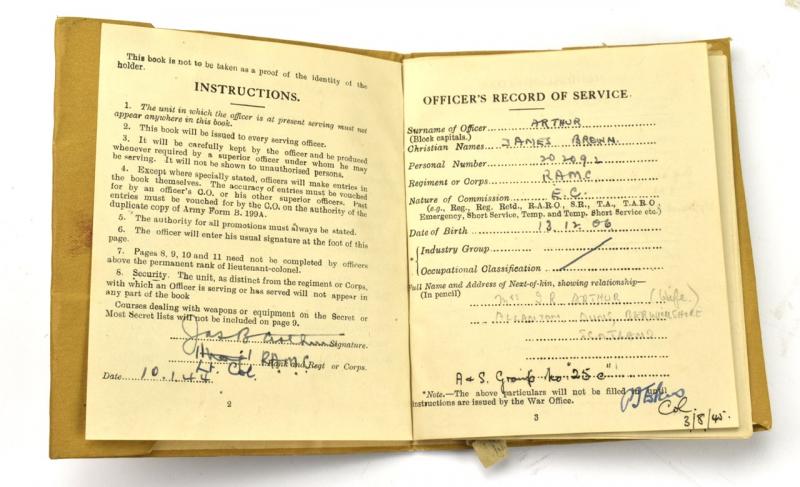 This book is not to be taken as a proof of the identity of the
holder.
INSTRUCTIONS.
1. The unit in which the officer is at present serving must not
appear anywhere in this book.
2. This book will be issued to every serving officer.
3. It will be carefully kept by the officer and be produced
whenever required by a superior officer under whom he may
be serving. It will not be shown to unauthorised persons.
4. Except where specially stated, officers will make entries in
the book themselves. The accuracy of entries must be vouched
for by an officer's C.O. or his other superior officers. Past
entries must be vouched for by the C.O. on the authority of the
duplicate copy of Army Form B. 199A.
5. The authority for all promotions must always be stated.
6. The officer will enter his usual signature at the foot of this
page.
7. Pages 8, 9, 10 and 11 need not be completed by officers
above the permanent rank of lieutenant-colonel.
8. Security. The unit, as distinct from the regiment or Corps,
with which an Officer is serving or has served will not appear in
any part of the book
Courses dealing with weapons or equipment on the Secret or
Most Secret lists will not be included on page 9.
Jas B Arthur Signature.
RAMC Rank and Regt or Corps.
Lt. Col.
Date 10.1.44
2
OFFICER'S RECORD OF SERVICE.
Surname of Officer ARTHUR
(Block capitals.)
Christian Names JAMES BROWN
Personal Number 202092
Regiment or Corps RAMC
Nature of Commission E.C.
(e.g., Reg., Reg. Retd., R.A.R.O., S.R., T.A., T.A.R.O.,
Emergency, Short Service, Temp. and Temp. Short Service etc.)
Date of Birth 13.12.06
*{Industry Group
Occupational Classification
Full Name and Address of Next-of-kin, showing relationship—
(In pencil)
Mrs ARTHUR (Wife)
ALLANTON DUNS, BERWICKSHIRE
SCOTLAND
A & S. Group No "25 c"
*Note.—The above particulars will not be filled in until
instructions are issued by the War Office.
Col
3/8/45.
3